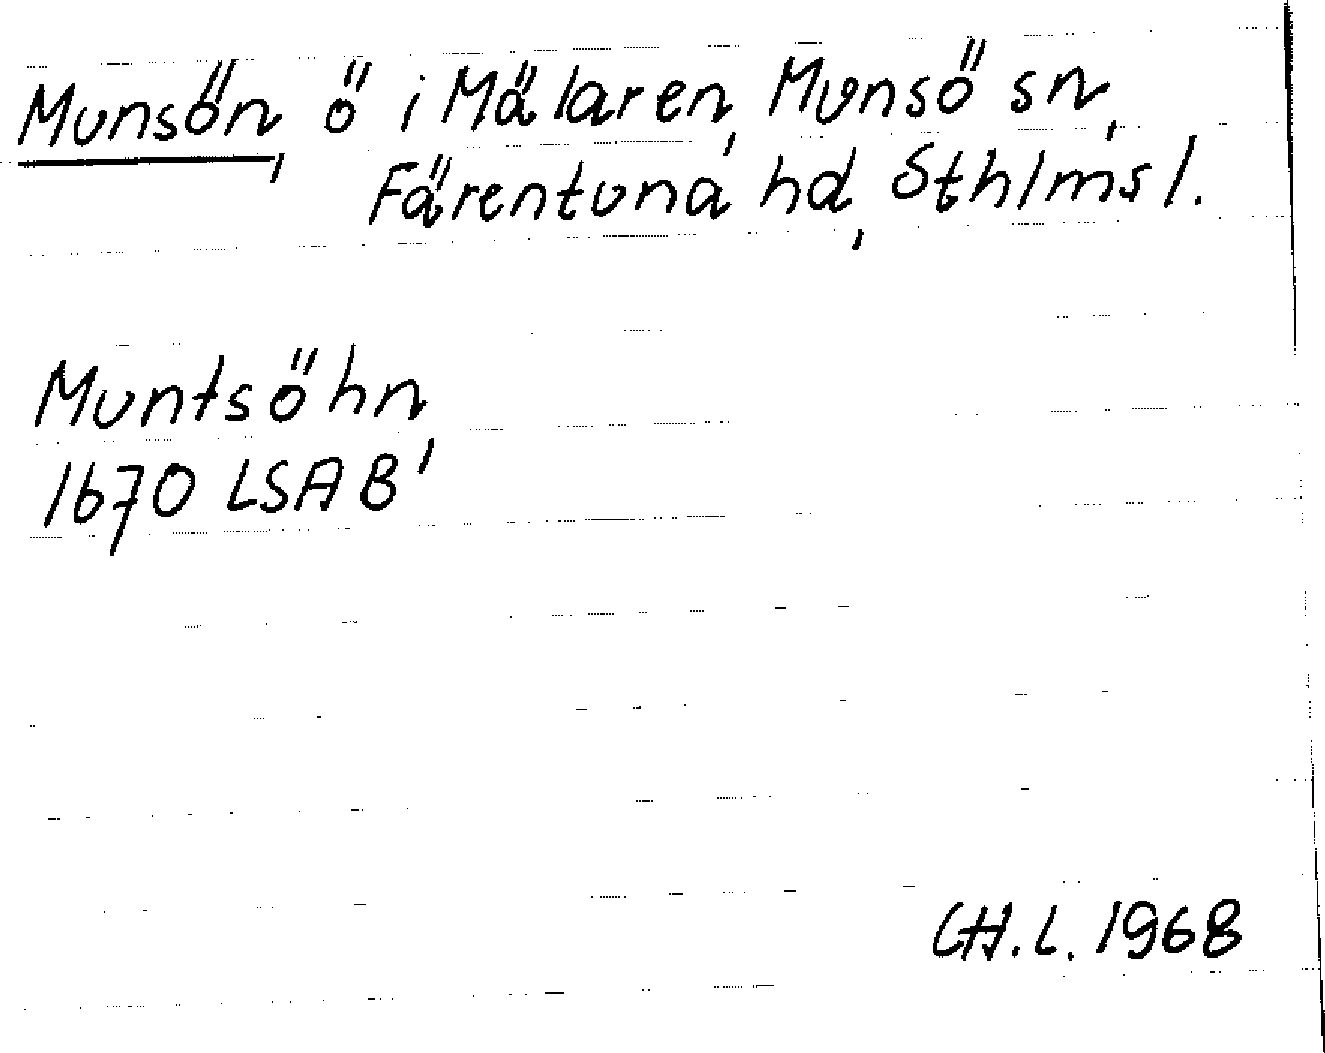 Munsön, ö i Mälaren, Munsö sn,
Färentuna hd, Sthlms l.
Muntsöhn
1670 LSA B'
CH.L. 1968